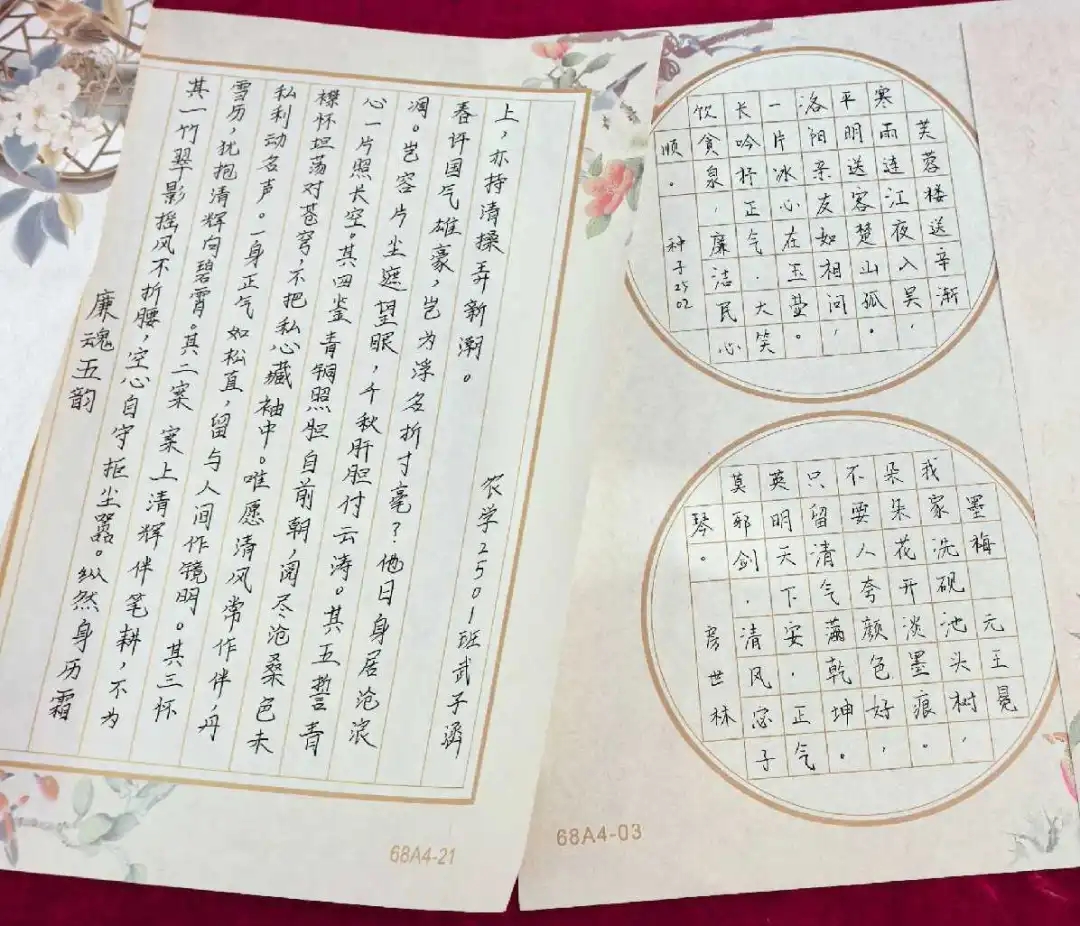 廉魂五韵
其一竹 翠影摇风不折腰,空心自守拒尘嚣。纵然身历霜
雪历,犹抱清辉向碧霄。其二案 案上清辉伴笔耕,不为
私利动名声。一身正气如松直,留与人间作镜明。其三怀
襟怀坦荡对苍穹,不把私心藏袖中。唯愿清风常作伴,丹
心一片照长空。其四鉴 青铜照胆自前朝,阅尽沧桑色未
凋。岂容片尘遮望眼,千秋肝胆付云涛。其五誓 青
春许国气雄豪,岂为浮名折寸毫?他日身居沧浪
上,亦持清操弄新潮。
农学2501班武子涵
68A4-21
芙蓉楼送辛渐
寒雨连江夜入吴,
平明送客楚山孤。
洛阳亲友如相问,
一片冰心在玉壶。
长吟抒正气.大笑
饮贪泉,廉洁民心
顺。
种子2502
墨梅 元 王冕
我家洗砚池头树,
朵朵花开淡墨痕。
不要人夸颜色好,
只留清气满乾坤。
英明天下安.正气
莫邪剑,清风宓子
琴。 房世林
68A4-03